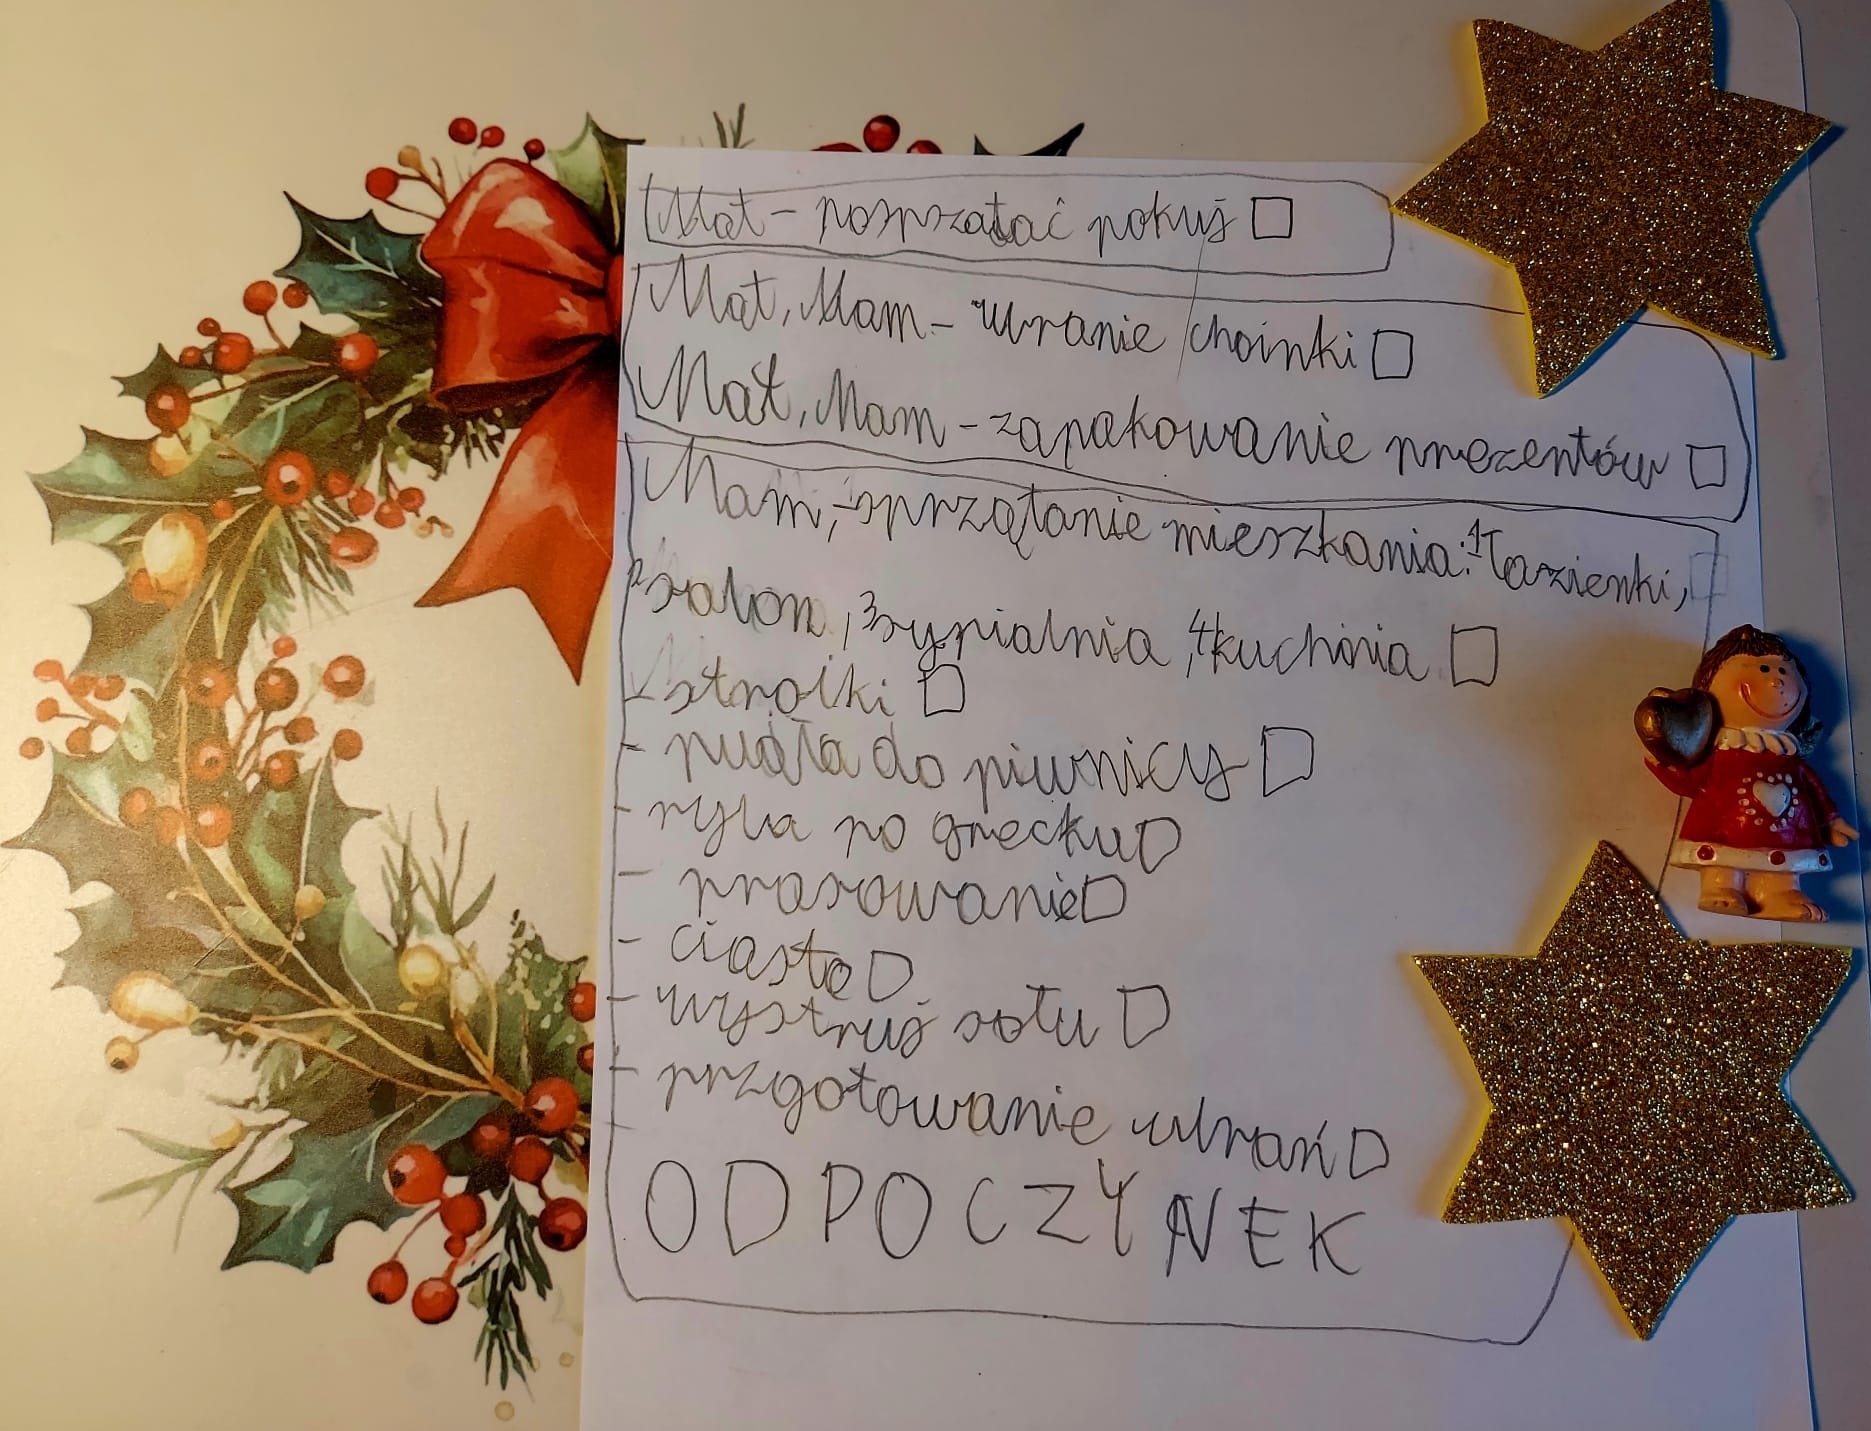 Mat - posprzatać pokuj
Mat, Mam - Ubranie choinki
Mat, Mam - zapakowanie prezentów
Mam, - sprzątanie mieszkania: 1 łazienki,
2 salon, 3 sypialnia, 4 kuchnia
- stroiki
- pudła do piwnicy
- ryba po grecku
- prasowanie
- ciasto
- wystruj stołu
- przgotowanie ubrań
ODPOCZYNEK